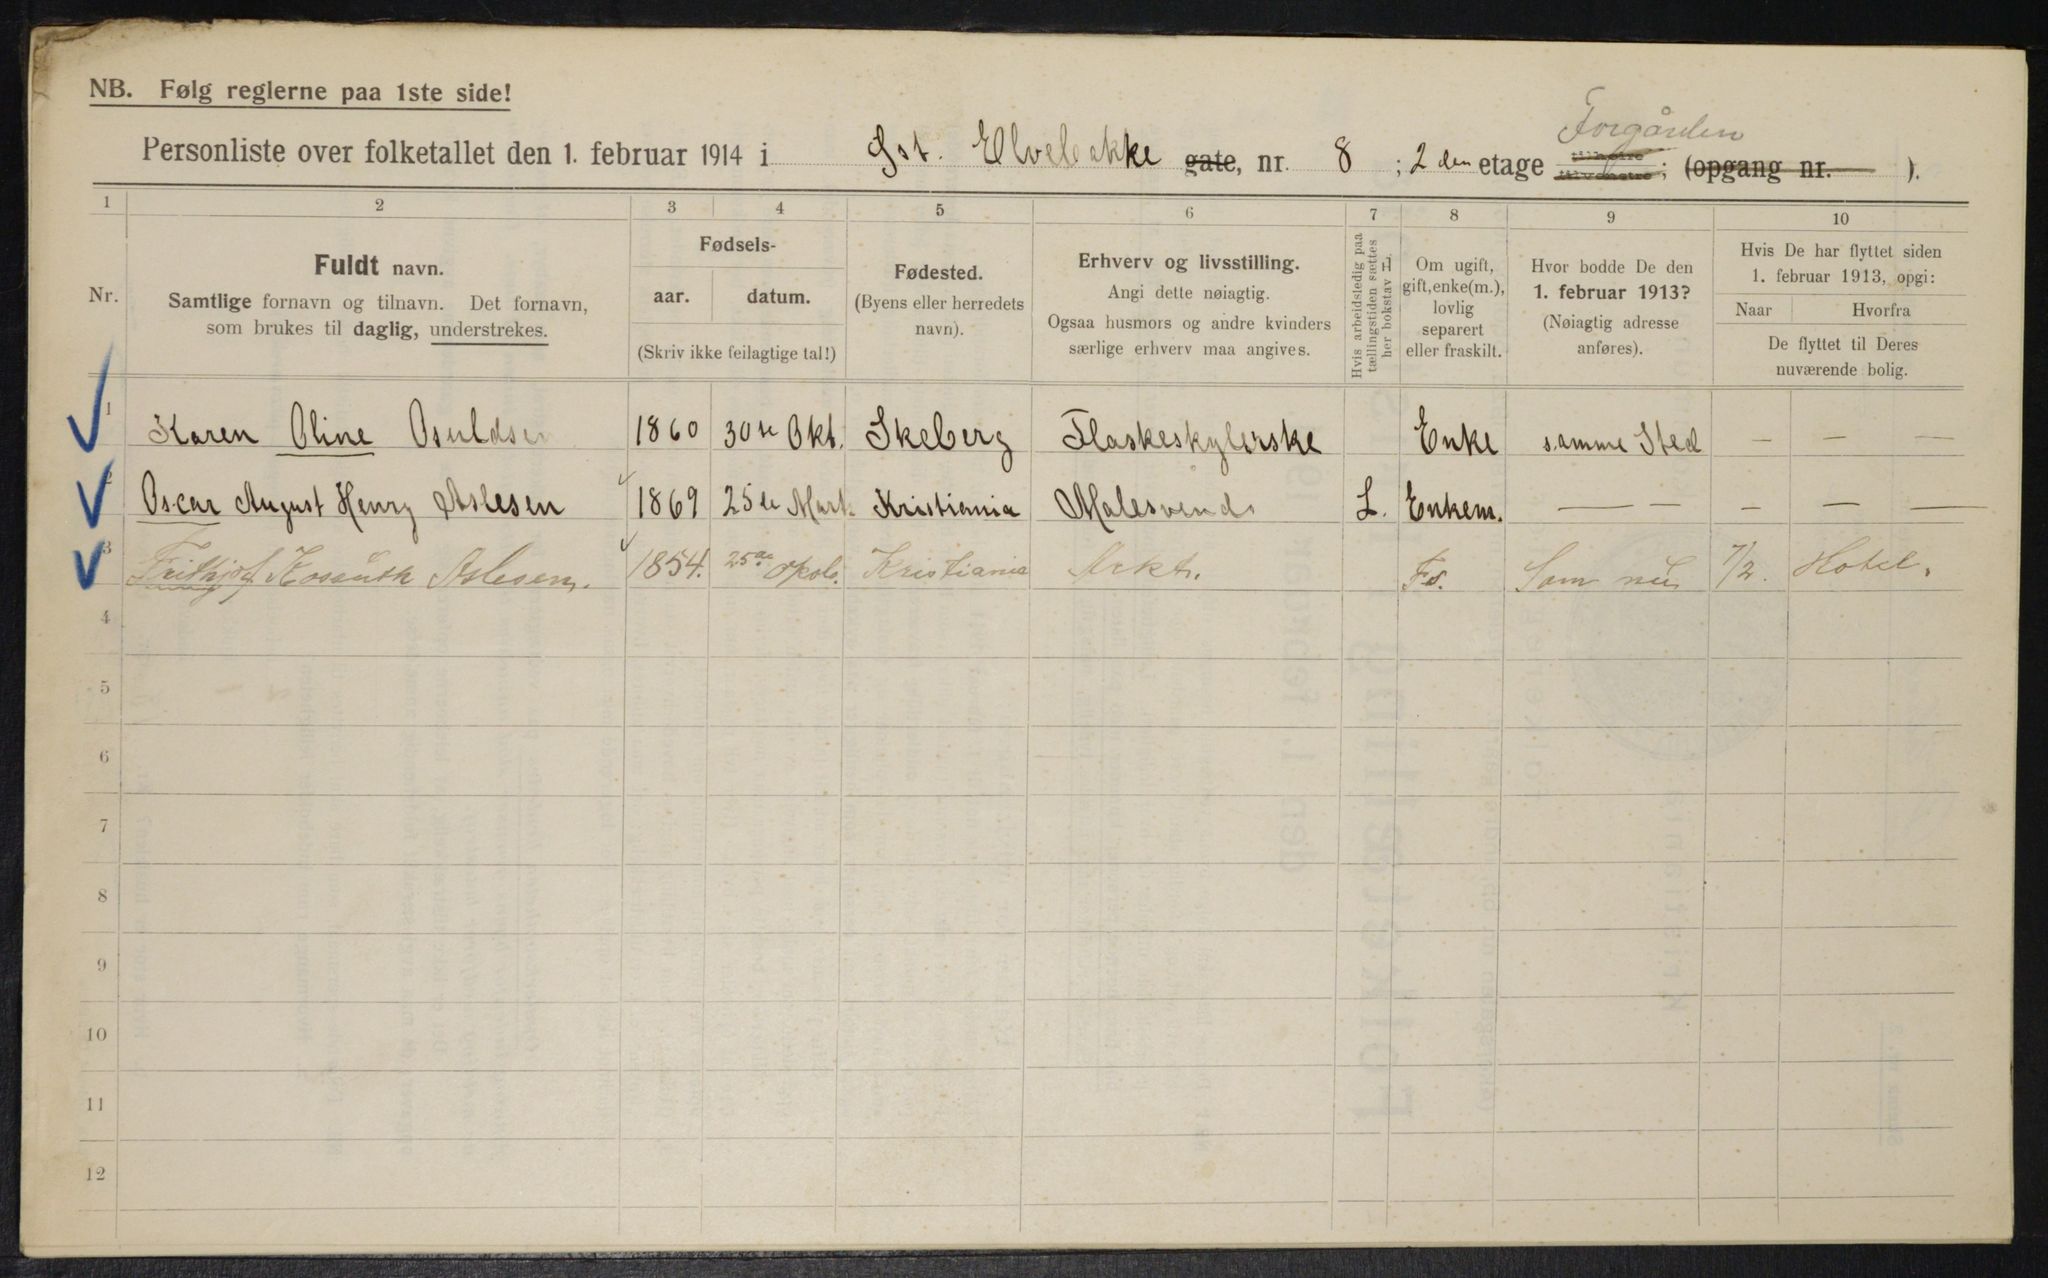 NB. Følg reglerne paa 1ste side!
Forgården
Personliste over folketallet den 1. februar 1914 i Gst. Elvebakke gate, nr. 8 ; 2 den etage ; (opgang nr. ).
1 2 3 4 5 6 7 8 9 10
Nr.
Fuldt navn.
Samtlige fornavn og tilnavn. Det fornavn,
som brukes til daglig, understrekes.
Fødsels-
aar. datum.
(Skriv ikke feilagtige tal!)
Fødested.
(Byens eller herredets
navn).
Erhverv og livsstilling.
Angi dette nøiagtig.
Ogsaa husmors og andre kvinders
særlige erhverv maa angives.
Hvis arbeidsledig paa
tællingstiden sættes
her bokstav L.
Om ugift,
gift, enke(m.),
lovlig
separert
eller fraskilt.
Hvor bodde De den
1. februar 1913?
(Nøiagtig adresse
anføres).
Hvis De har flyttet siden
1. februar 1913, opgi:
Naar Hvorfra
De flyttet til Deres
nuværende bolig.
1 Karen Oline Osuldsen 1860 30te Okt. Skeberg Flaskeskylerske Enke samme Sted — — —
2 Oscar August Henry Aslesen 1869 25de Mart. Kristiania Malesvend L. Enkem. — — — — —
3 Frithjof Aslesen. 1854. 25de Kristiania Fs. Som nu 7/2. Hotel.
4
5
6
7
8
9
10
11
12